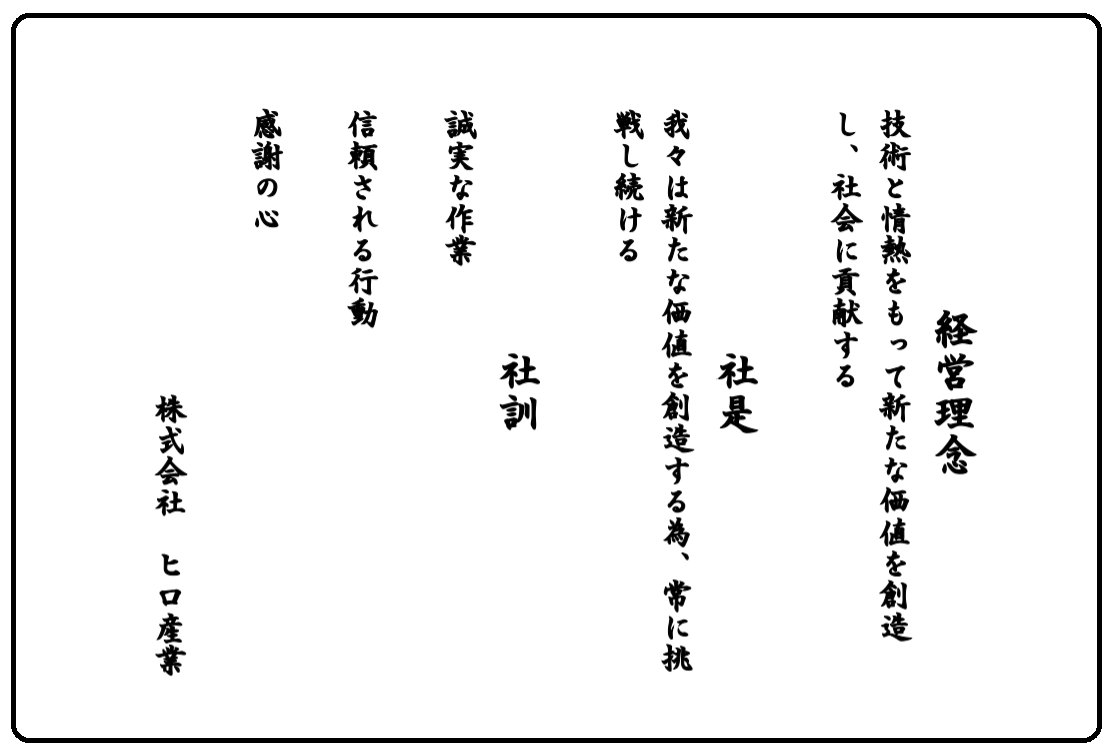 経営理念
技術と情熱をもって新たな価値を創造
し、社会に貢献する
社是
我々は新たな価値を創造する為、常に挑
戦し続ける
社訓
誠実な作業
信頼される行動
感謝の心
株式会社　ヒロ産業